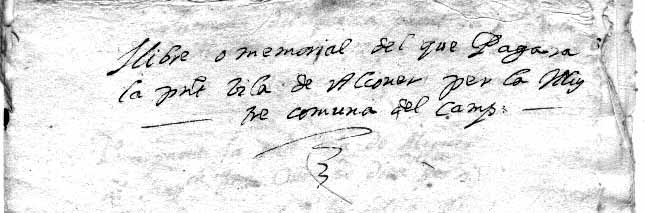 Llibre o memorial del que Pagara
la pnt vila de Alcouer per la Illus
tre comuna del Camp: